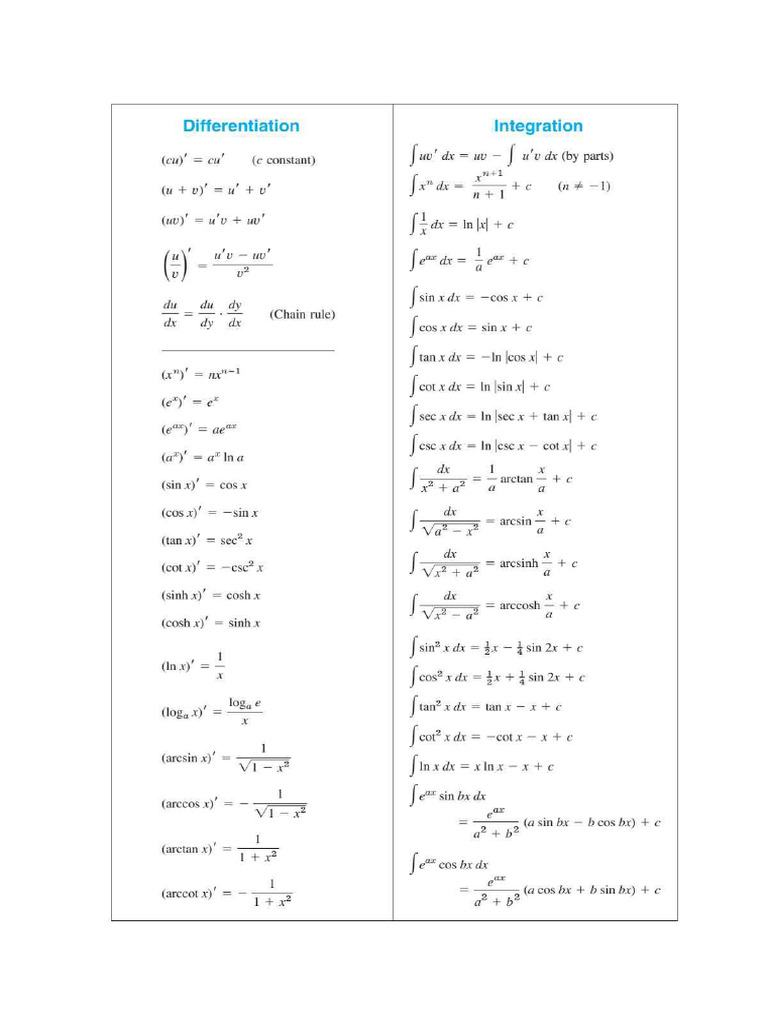 Differentiation
(cu)′ = cu′ (c constant)
(u + v)′ = u′ + v′
(uv)′ = u′v + uv′
(u/v)′ = (u′v − uv′)/v²
du/dx = du/dy · dy/dx (Chain rule)
(xⁿ)′ = nxⁿ⁻¹
(eˣ)′ = eˣ
(eᵃˣ)′ = aeᵃˣ
(aˣ)′ = aˣ ln a
(sin x)′ = cos x
(cos x)′ = −sin x
(tan x)′ = sec² x
(cot x)′ = −csc² x
(sinh x)′ = cosh x
(cosh x)′ = sinh x
(ln x)′ = 1/x
(logₐ x)′ = logₐ e/x
(arcsin x)′ = 1/√(1 − x²)
(arccos x)′ = − 1/√(1 − x²)
(arctan x)′ = 1/(1 + x²)
(arccot x)′ = − 1/(1 + x²)
Integration
∫ uv′ dx = uv − ∫ u′v dx (by parts)
∫ xⁿ dx = xⁿ⁺¹/(n + 1) + c (n ≠ −1)
∫ 1/x dx = ln |x| + c
∫ eᵃˣ dx = 1/a eᵃˣ + c
∫ sin x dx = −cos x + c
∫ cos x dx = sin x + c
∫ tan x dx = −ln |cos x| + c
∫ cot x dx = ln |sin x| + c
∫ sec x dx = ln |sec x + tan x| + c
∫ csc x dx = ln |csc x − cot x| + c
∫ dx/(x² + a²) = 1/a arctan x/a + c
∫ dx/√(a² − x²) = arcsin x/a + c
∫ dx/√(x² + a²) = arcsinh x/a + c
∫ dx/√(x² − a²) = arccosh x/a + c
∫ sin² x dx = ½x − ¼ sin 2x + c
∫ cos² x dx = ½x + ¼ sin 2x + c
∫ tan² x dx = tan x − x + c
∫ cot² x dx = −cot x − x + c
∫ ln x dx = x ln x − x + c
∫ eᵃˣ sin bx dx
= eᵃˣ/(a² + b²) (a sin bx − b cos bx) + c
∫ eᵃˣ cos bx dx
= eᵃˣ/(a² + b²) (a cos bx + b sin bx) + c